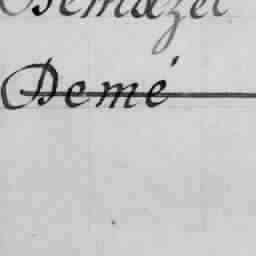 Demazel
Demé